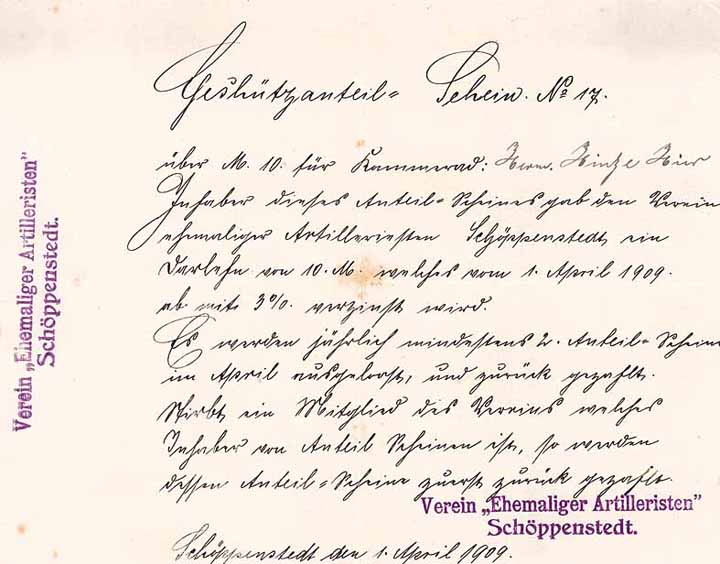 Geshützanteil= Schein. No 17.
über M. 10. für Kammerad: Herrn. Hintze Hier
Inhaber dieses Anteil=Scheines gab den Verein
ehemaliger Artilleriesten Schöppenstedt, ein
Darlehn von 10. M. welches vom 1. April 1909.
ab mit 3%. verzinst wird.
Es werden jährlich mindestens 2. Anteil=Scheine
im April ausgeloost, und zurück gezahlt.
Stirbt ein Mitglied des Vereins welches
Inhaber von Anteil Scheinen ist, so werden
dessen Anteil=Scheine zuerst zurück gezahlt.
Verein „Ehemaliger Artilleristen"
Schöppenstedt.
Schöppenstedt den 1. April 1909.
Verein „Ehemaliger Artilleristen"
Schöppenstedt.